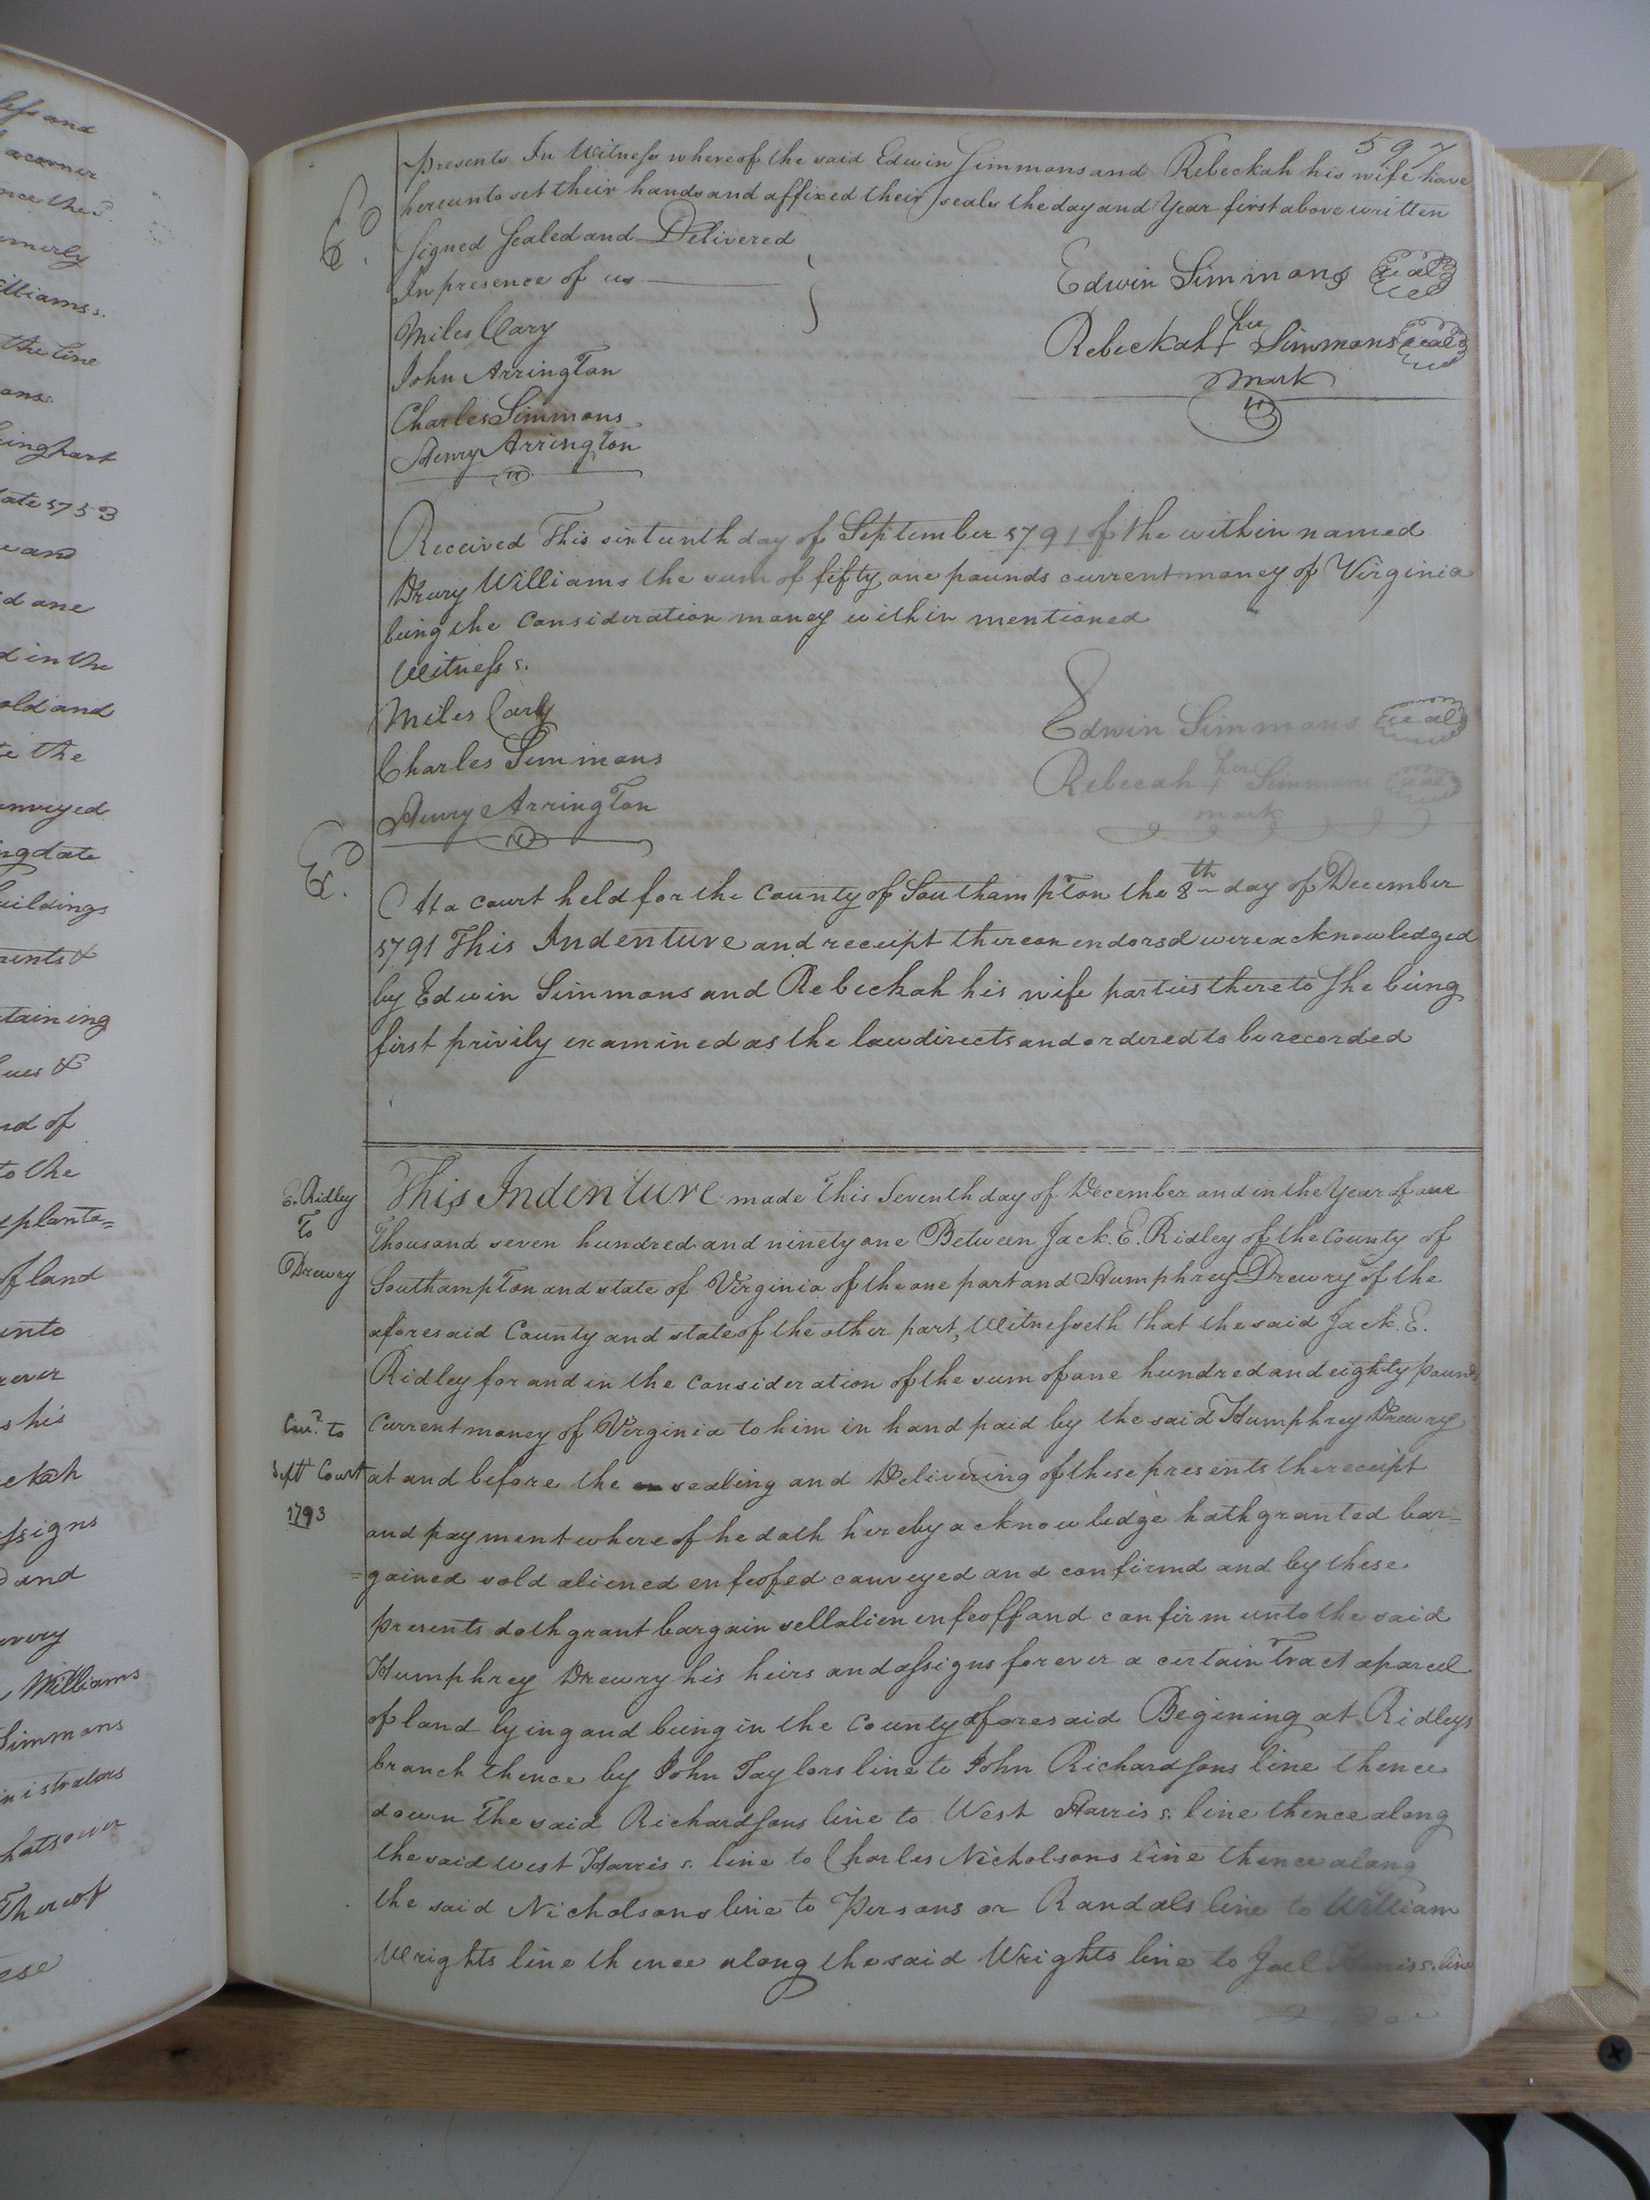 597
presents In Witness whereof the said Edwin Simmons and Rebeckah his wife have
hereunto set their hands and affixed their seales the day and Year first above written
Signed Sealed and Delivered
In presence of us
Edwin Simmons Seal
Miles Cary
Rebeckah her + Simmons Seal
mark
John Arrington
Charles Simmons
Henry Arrington
Received This sixteenth day of September 1791 of the within named
Drury Williams the sum of fifty one pounds current money of Virginia
being the Consideration money within mentioned
Witness s.
Miles Cary
Edwin Simmons Seal
Charles Simmons
Rebecah her + Simmons Seal
mark
Henry Arrington
At a Court held for the County of Southampton the 8th day of December
1791 This Indenture and receipt thereon endorsd were acknowledged
by Edwin Simmons and Rebeckah his wife parties thereto She being
first privily examined as the law directs and ordered to be recorded
E. Ridley
To
Drewry
This Indenture made This Seventh day of December and in the Year of one
Thousand seven hundred and ninety one Between Jack. E. Ridley of the County of
Southampton and state of Virginia of the one part and Humphrey Drewry of the
aforesaid County and state of the other part, Witnesseth that the said Jack. E.
Ridley for and in the Consideration of the sum of one hundred and eighty pounds
Current money of Virginia to him in hand paid by the said Humphrey Drewry
to
Sept Court
1793
at and before the sealing and Delivering of these presents the receipt
and payment whereof he doth hereby acknowledge hath granted bar=
=gained sold aliened enfeofed conveyed and confirmd and by these
presents doth grant bargain sell alien enfeoff and confirm unto the said
Humphrey Drewry his heirs and assigns forever a certain Tract aparcel
of land lying and being in the County aforesaid Begining at Ridleys
branch thence by John Taylors line to John Richardsons line thence
down The said Richardsons line to West Harris s. line thence along
the said West Harris s. line to Charles Nicholsons line thence along
the said Nicholsons line to Persons or Randals line to William
Wrights line thence along the said Wrights line to Joel Harris s. line
less and
acorner
merly
Williams s.
the line
ate 1753
and
d one
d in the
old and
the
nveyed
ng date
uildings
rents &
taining
ues &
nd of
to the
planta=
of land
unto
rever
s his
ckah
ssigns
and
every
Williams
Simmons
inistrators
hatsover
Thereof
ese